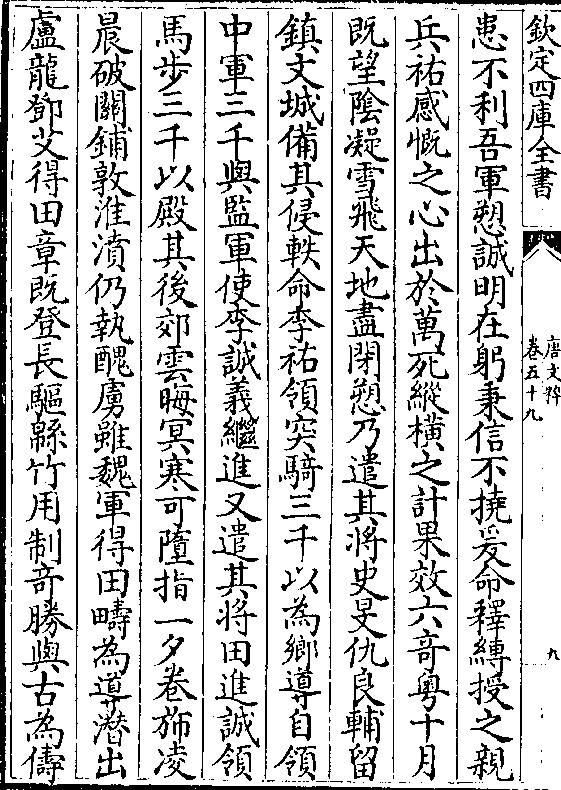 欽定四庫全書
唐文粹
卷五十九
九
患不利吾軍愬誠明在躬秉信不撓爰命釋縛授之親
兵祐感慨之心出於萬死縱橫之計果效六奇粤十月
既望陰凝雪飛天地盡閉愬乃遣其將史旻仇良輔留
鎮文城備其侵軼命李祐領突騎三千以為鄉導自領
中軍三千與監軍使李誠義繼進又遣其將田進誠領
馬步三千以殿其後郊雲晦冥寒可墮指一夕卷斾凌
晨破關鋪敦淮濆仍執醜虜雖魏軍得田疇為導潛出
盧龍鄧艾得田章既登長驅緜竹用制奇勝與古為儔